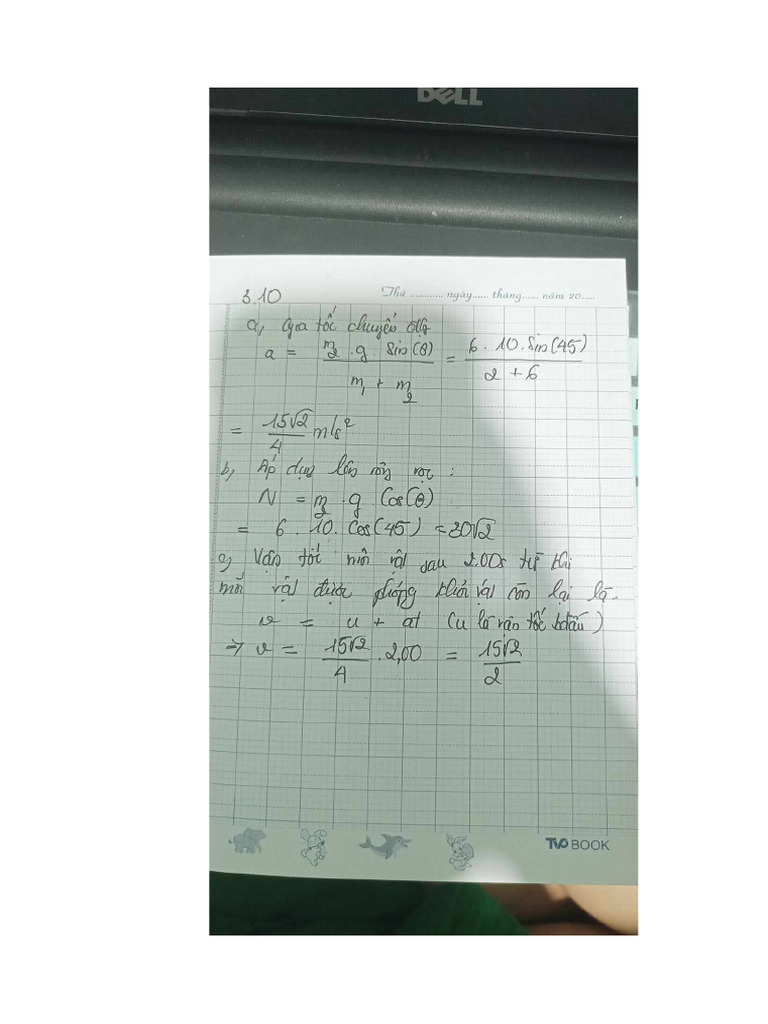 DELL
3.10
Thứ ............ ngày...... tháng...... năm 20.....
a, Gia tốc chuyển
a = m₂ . g . Sin(θ) / m₁ + m₂ = 6 . 10 . Sin(45) / 2 + 6
= 15√2 / 4 m/s²
b, Áp dụng lên ròng rọc :
N = m₂ . g Cos(θ)
= 6 . 10 . Cos(45) = 30√2
c, Vận tốc mỗi vật sau 2.00s từ khi
mỗi vật được phóng khỏi vật còn lại là.
v = u + at (u là vận tốc bđầu)
→ v = 15√2 / 4 . 2,00 = 15√2 / 2
TVO BOOK